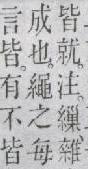 皆就。注。繅雜
成也。繩之每
言皆。有不皆